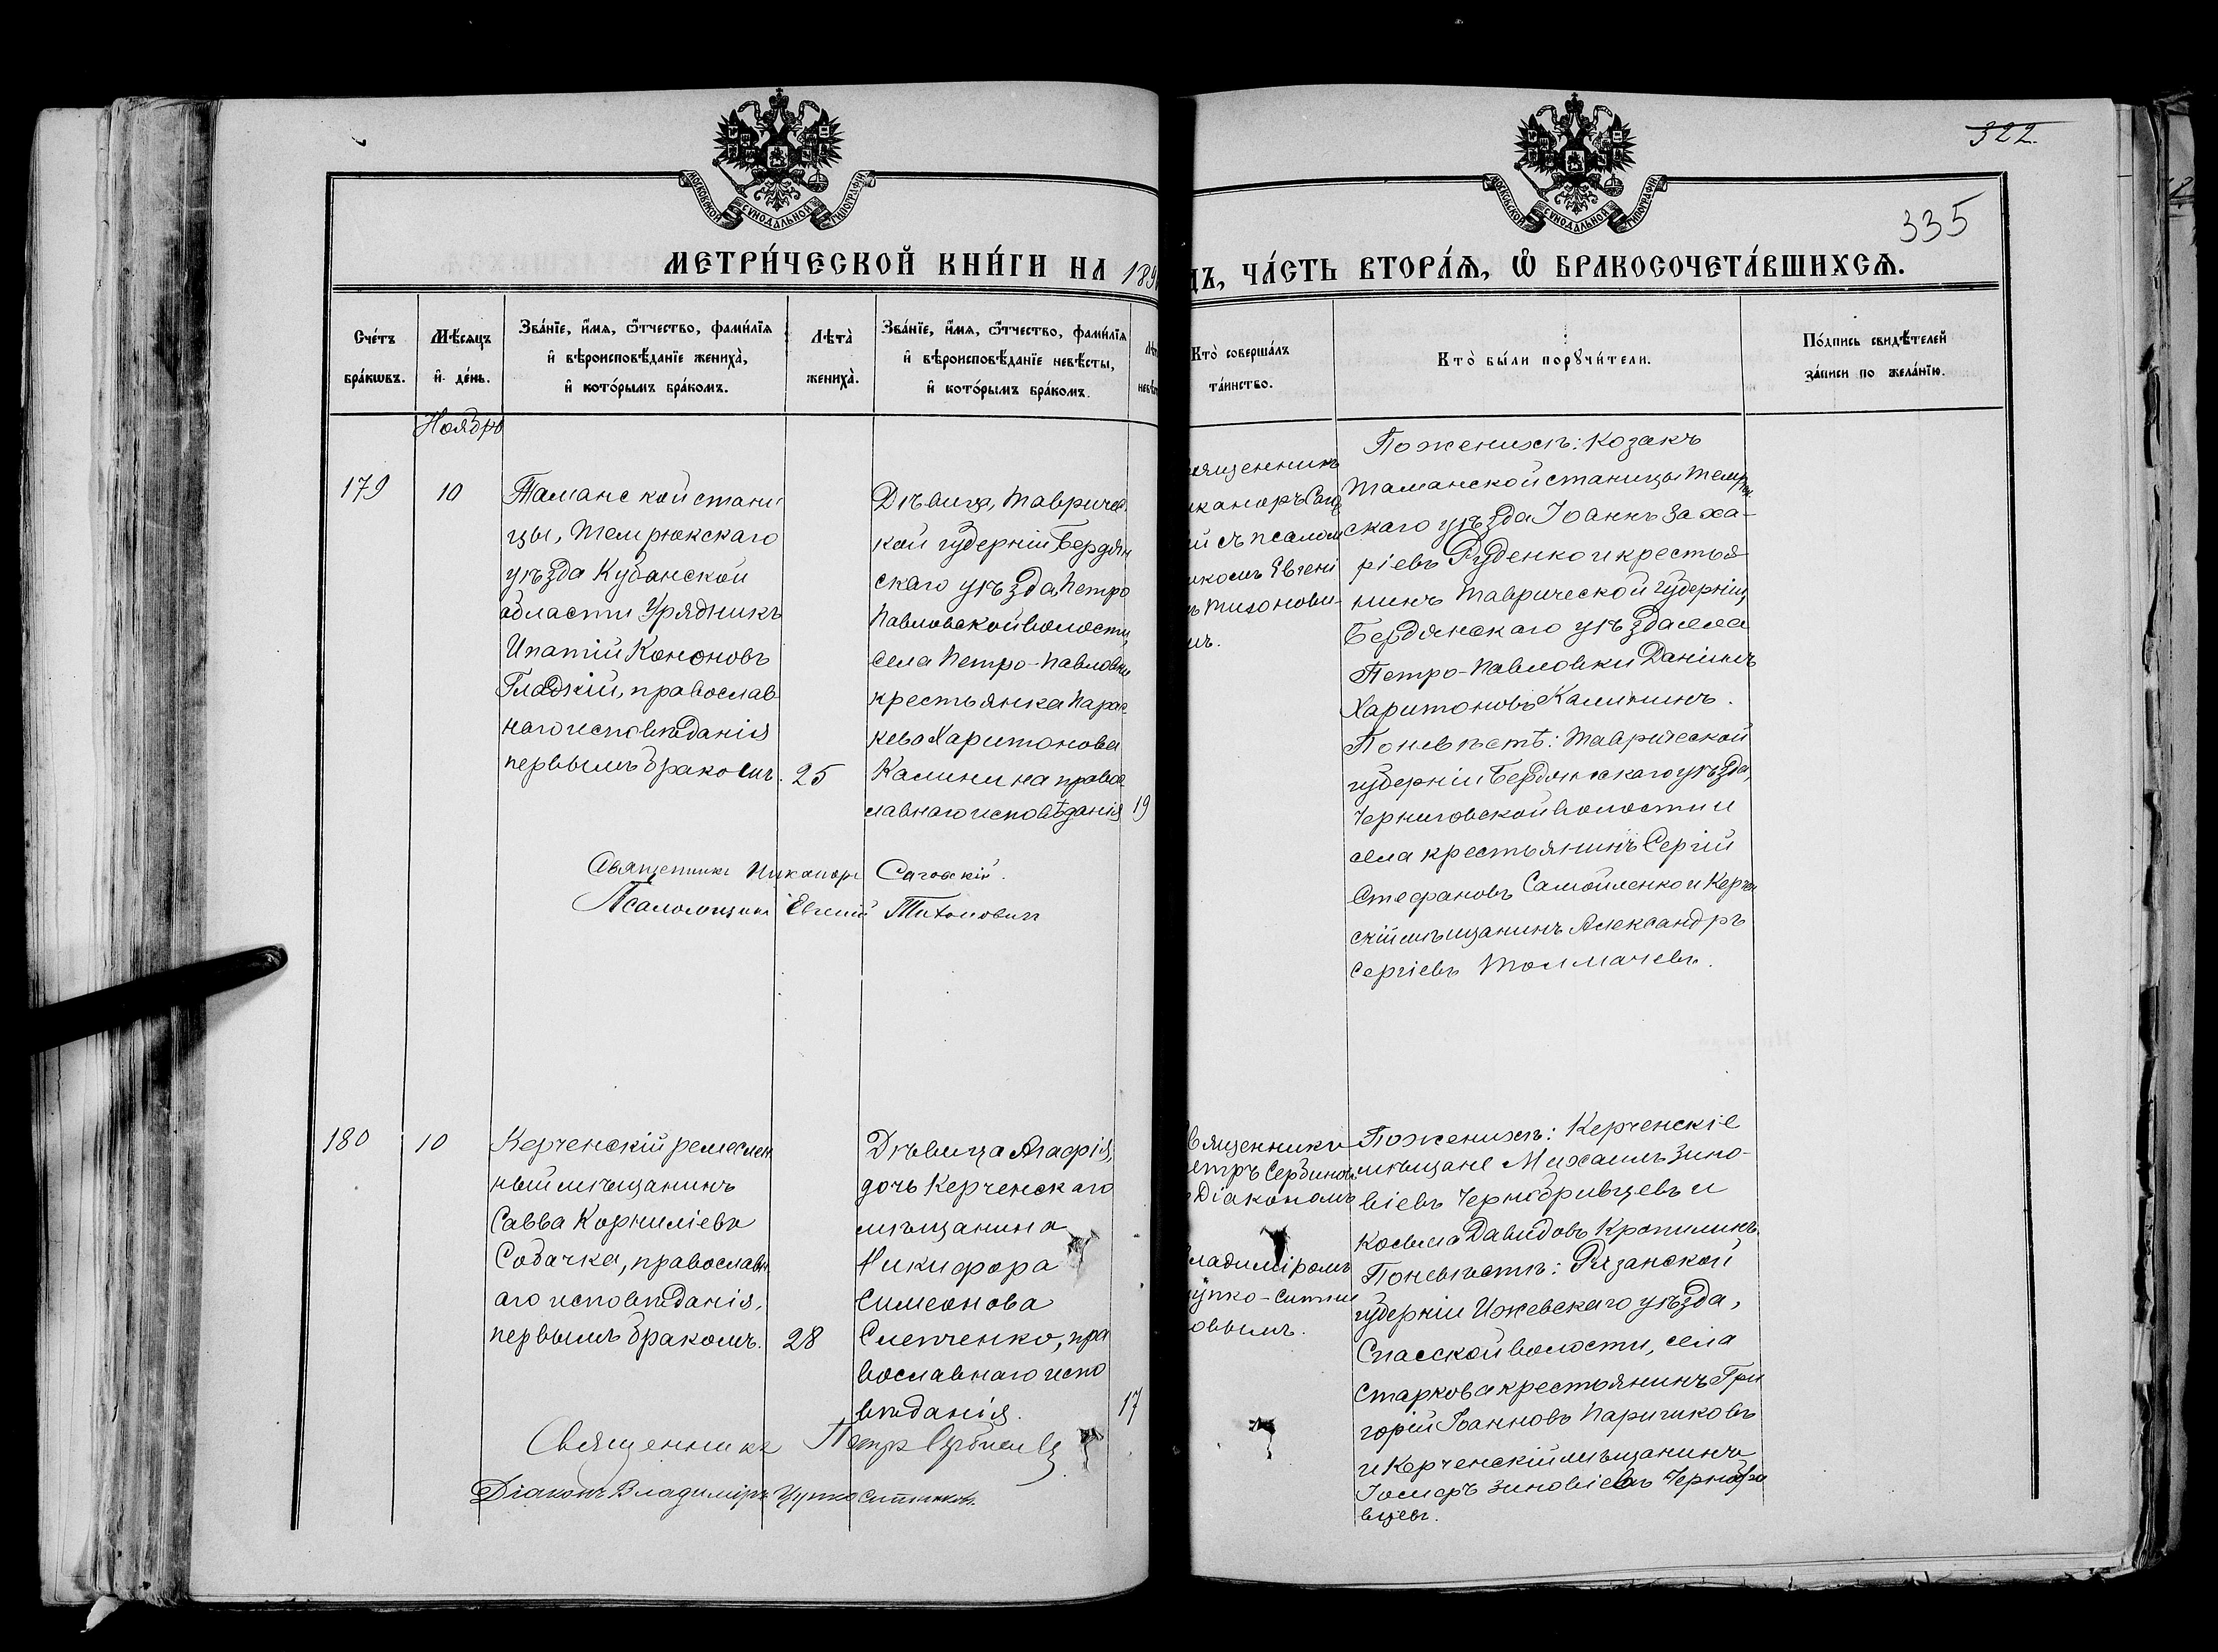 322.
335
МОСКОВСКОЙ СУНОДАЛЬНОЙ ТИПОГРАФІИ
МОСКОВСКОЙ СУНОДАЛЬНОЙ ТИПОГРАФІИ
МЕТРИ́ЧЕСКОЙ КНИ́ГИ НА 189
ДЪ, ЧА́СТЬ ВТОРА́Ѧ, Ѡ҆ БРАКОСОЧЕТА́ВШИХСѦ.
Сче́тъ
бра́кѡвъ.
Мѣ́сяцъ
и҆ де́нь.
Зва́нїе, и҆́мя, ѻ҆́тчество, фами́лїя
и҆ вѣроисповѣ́данїе жениха̀,
и҆ кото́рымъ бра́комъ.
Лѣта̀
жениха̀.
Зва́нїе, и҆́мя, ѻ҆́тчество, фами́лїя
и҆ вѣроисповѣ́данїе невѣ́сты,
и҆ кото́рымъ бра́комъ.
Кто̀ соверша́лъ
та́инство.
Кто̀ бы́ли порꙋчи́тели.
По́дпись свидѣ́телей
за́писи по жела́нїю.
Ноябрь
179
10
Таманской стани
цы, Темрюкскаго
уѣзда Кубанской
области Урядникъ
Ипатій Кононовъ
Гладкій, православ
наго исповѣданія
первымъ бракомъ.
25
Дѣвица, Тавричес
кой губерніи Бердян
скаго уѣзда, Петро
Павловской волости,
села Петро-Павловки
крестьянка Парас
кева Харитонова
Калинина правос
лавнаго исповѣданія
19
ященникъ
иканоръ Саго
ій съ псалом
икомъ Евгені
ъ Тихонови-
мъ.
По женихѣ: Козакъ
Таманской станицы Темрюк
скаго уѣзда Іоаннъ Заха-
ріевъ Руденко и крестья
нинъ Таврической губерніи,
Бердянскаго уѣзда села
Петро-Павловки Даніилъ
Харитоновъ Калининъ.
По невѣстѣ: Таврической
губерніи Бердянскаго уѣзда,
Черниговской волости и
села крестьянинъ Сергій
Стефановъ Самойленко и Керчен
скій мѣщанинъ Александръ
Сергіевъ Толмачевъ.
Священникъ Никаноръ Саговскій.
Псаломщикъ Евгеній Тихоновичъ
180
10
Керченскій ремеслен
ный мѣщанинъ
Савва Корниліевъ
Собачка, православн
аго исповѣданія,
первымъ бракомъ.
28
Дѣвица Агафія,
дочь Керченскаго
мѣщанина
Никифора
Симеонова
Слепченко, пра
вославнаго испо
вѣданія.
17
вященникъ
етръ Сербинов
Діакономъ
ладиміромъ
упко-Ситни
овымъ.
По женихѣ: Керченскіе
мѣщане Михаилъ Зино-
віевъ Чернобривцевъ и
Косьма Давидовъ Кропилинъ.
По невѣстѣ: Рязанской
губерніи Ижевскаго уѣзда,
Спасской волости, села
Старкова крестьянинъ Гри
горій Іоанновъ Паричковъ
и Керченскій мѣщанинъ
Іосифъ Зиновіевъ Чернобри
вцевъ.
Священникъ Петръ
Діаконъ Владиміръ Цупко Ситниковъ.